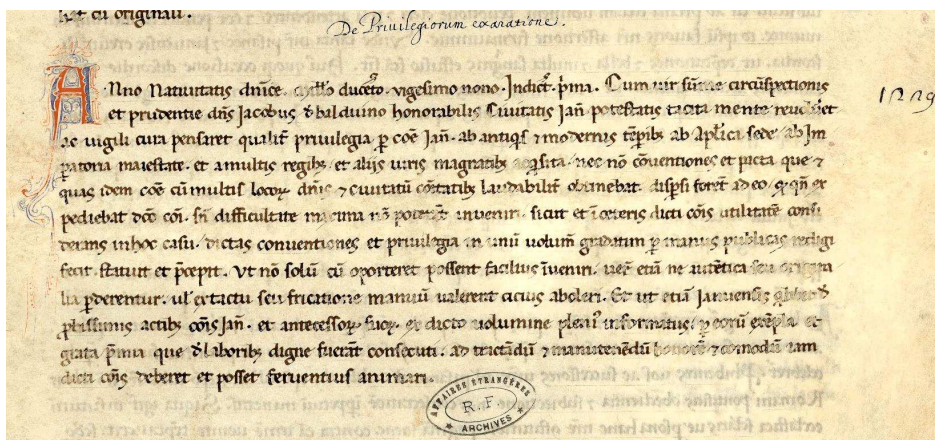 hǣt cū originali.
De Privilegiorum exaratione.
Anno Nativitatis dn̄ice. Millō ducēto. vigesimo nono. Indict̄. p̄ma. Cum vir sūme circūspectionis
1229
et prudentie dn̄s Jacobus d̄ balduino honorabilis Civitatis Jan̄ potestatis tacita mente revolv̄et
ac vigili cura pensaret qualit̄ privilegia p̱ cōe Jan̄. ab antiqis ⁊ modernis tēpib; ab Ap̄lica sede. ab Im
patoria maiestate. et a multis regib; et aliis viris magnatib; aq̇sita. nec nō cōventiones et pacta que ⁊
quas idem cōe cū multis locoꝝ dn̄is ⁊ civitatū cōitatib; laudabilit̄ obtinebat. disp̱si forēt adeo. q̇ qn̄ ex
pediebat dc̄o cōi. sn̄ difficultate maxima nō poterāt inveniri. sicut et ī ceteris dicti cōis utilitatē consi
derans in hoc casu. dictas conventiones et privilegia in unū volum̄ ... p̱ manus publicas redigi
fecit. statuit et p̄cepit. Vt nō solū cū oporteret possent facilius īveniri. ver̄ etiā ne autētica seu origina
lia p̱derentur. ul̄ ex tactu seu fricatione manuū valerent cicius aboleri. Et ut etiā Januensis q̇libet d̄
p̱bissimis actib; cōis Jan̄. et antecessoꝝ suoꝝ. ex dicto volumine pleni⁹ informatus. p̱ eorū exēpla et
grata p̄mia que d̄ laborib; digne fuerāt consecuti. ad tractādū ⁊ manutenēdū honorē ⁊ comodū iam
dicti cōis deberet et posset ferventius animari.
AFFAIRES ÉTRANGÈRES
R.F.
ARCHIVES